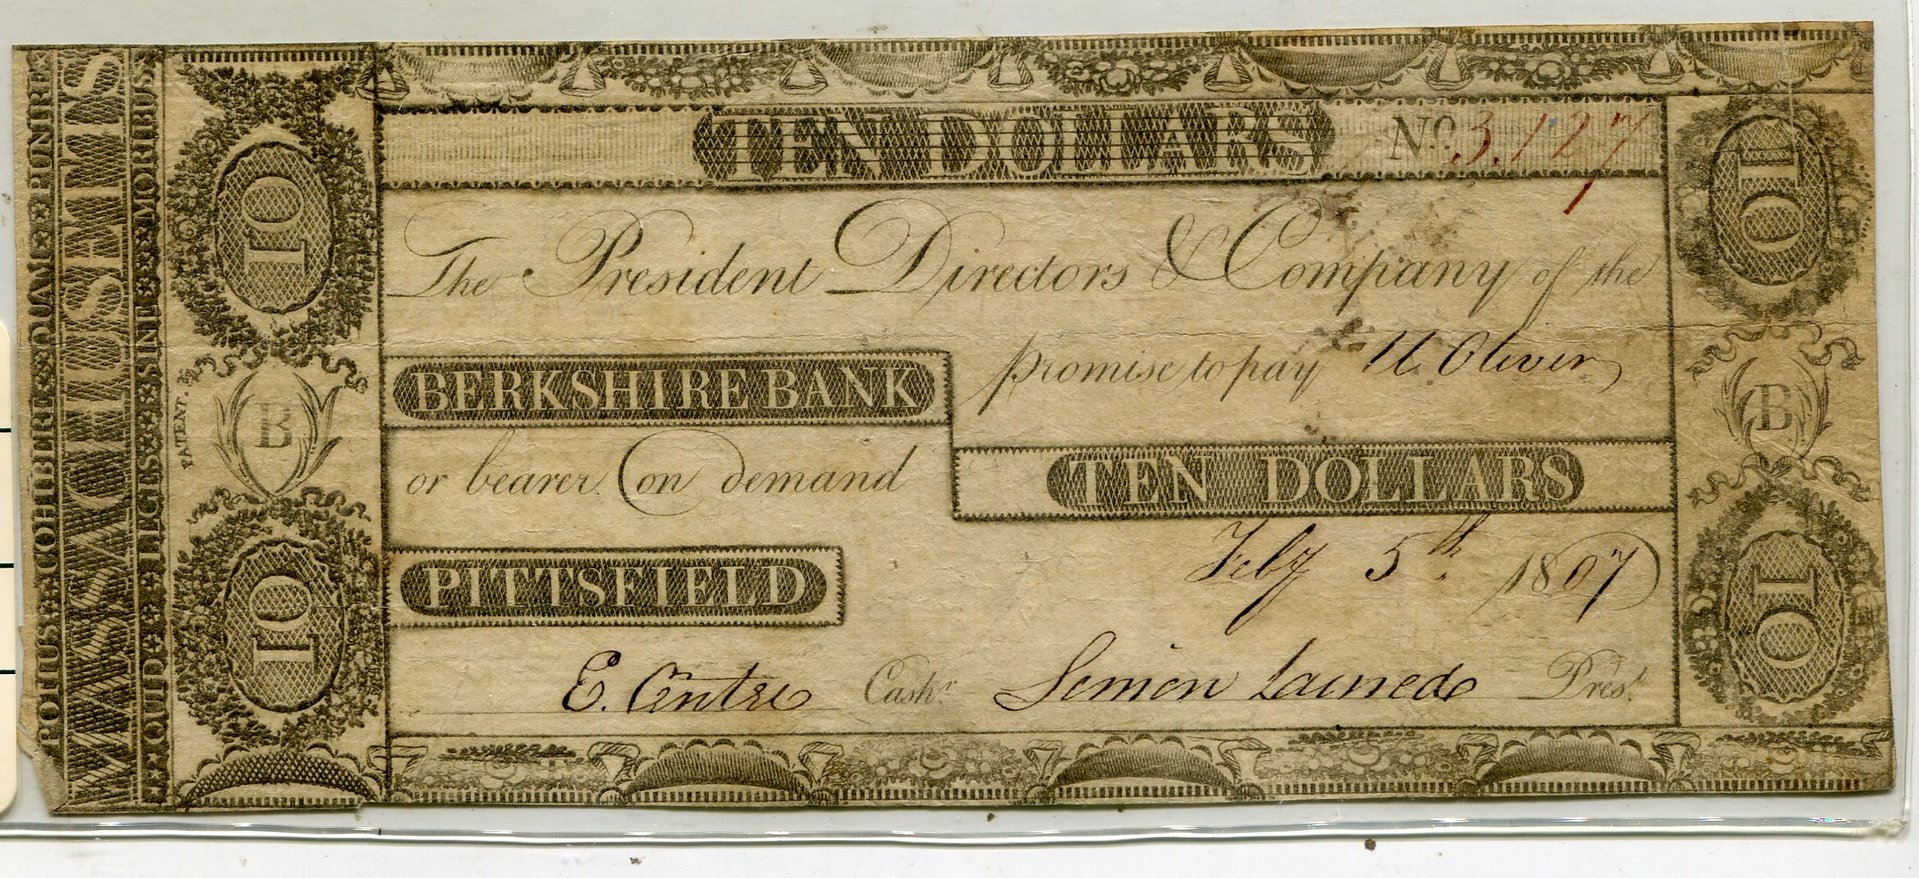 MASSACHUSETTS
POTIUS COHIBERE QUAM PUNIRE
QUID LEGES SINE MORIBUS
PATENT.
10
B
10
TEN DOLLARS
No. 3.127
The President Directors & Company of the
BERKSHIRE BANK promise to pay U. Oliver
or bearer on demand TEN DOLLARS
PITTSFIELD Feby 5th 1807
E. Cashr. Simon Larned Prest.
10
B
10